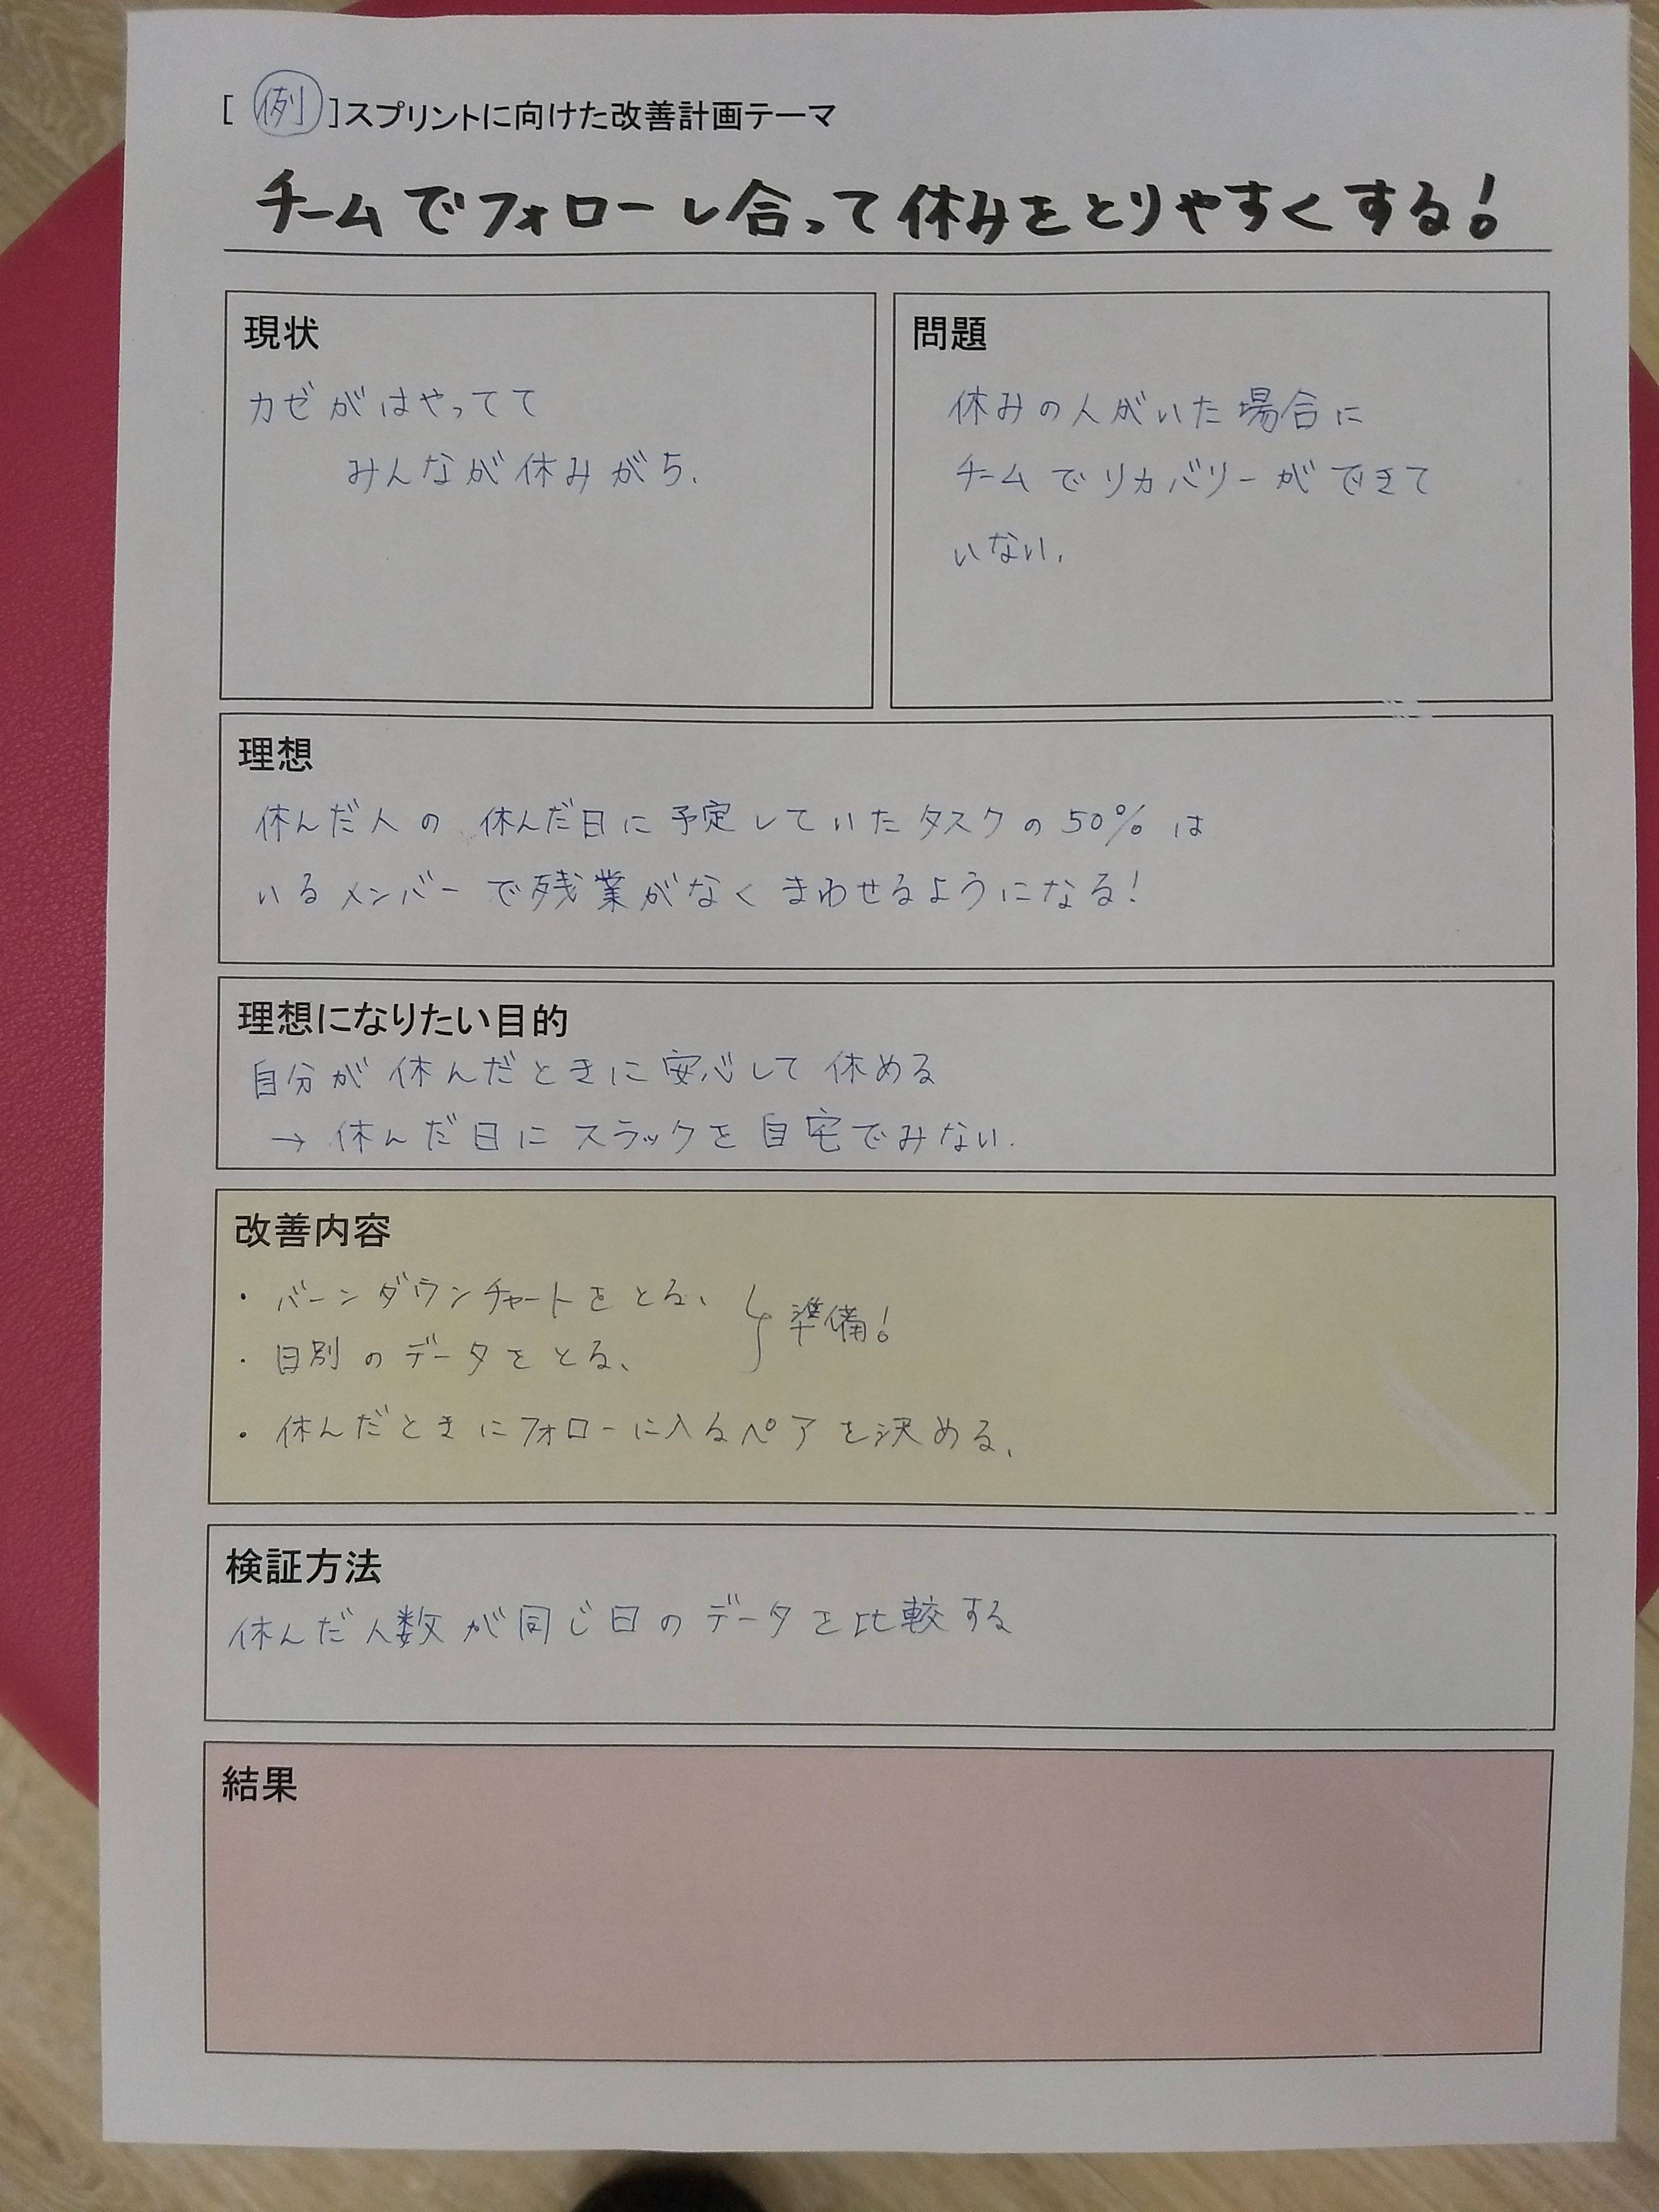 [ 例 ]スプリントに向けた改善計画テーマ
チームでフォローし合って休みをとりやすくする!
現状
カゼがはやってて
みんなが休みがち.
問題
休みの人がいた場合に
チームでリカバリーができて
いない.
理想
休んだ人の 休んだ日に予定していたタスクの50%は
いるメンバーで残業がなくまわせるようになる!
理想になりたい目的
自分が休んだときに安心して休める
→ 休んだ日にスラックを自宅でみない.
改善内容
・バーンダウンチャートをとる、
・日別のデータをとる、
準備!
・休んだときにフォローに入るペアを決める、
検証方法
休んだ人数が同じ日のデータを比較する
結果